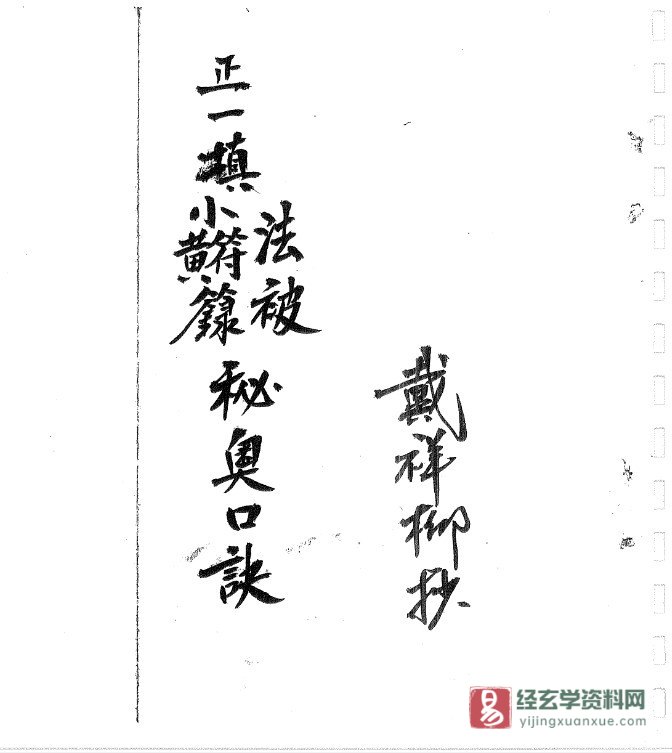 戴祥柳抄
正一填
法被
小黄符籙
秘奥口訣
易 经玄学资料网
yijingxuanxue.com